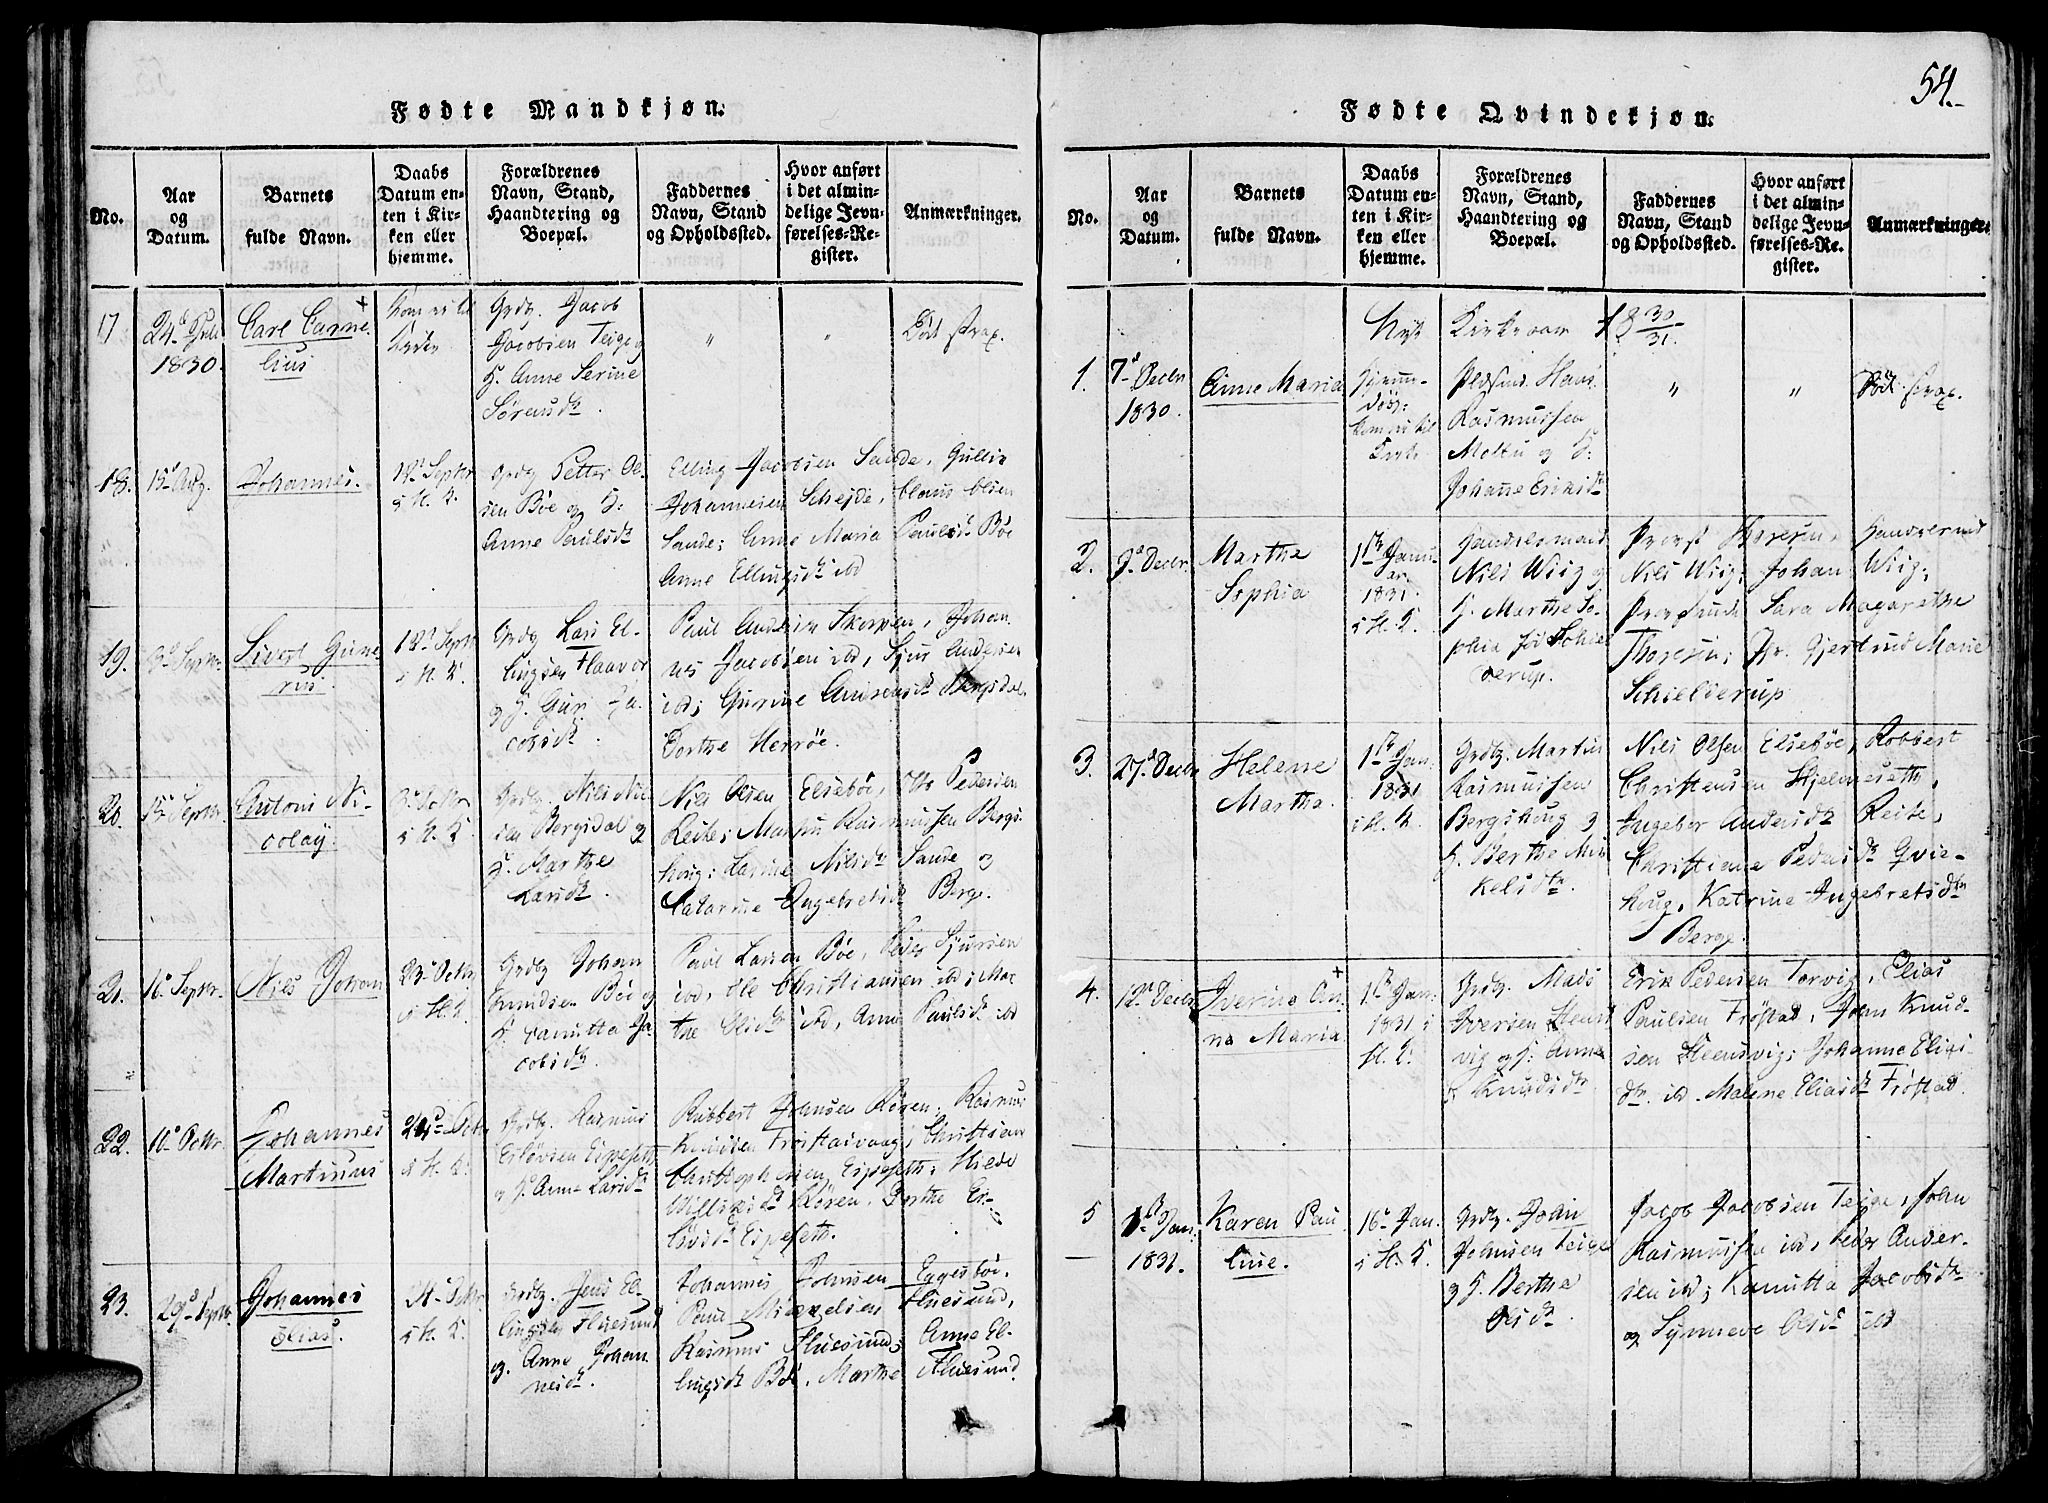 54.
Fødte Mandkjøn.
No.
Aar og Datum.
Barnets fulde Navn.
Daabs Datum enten i Kirken eller hjemme.
Forældrenes Navn, Stand, Haandtering og Boepæl.
Faddernes Navn, Stand og Opholdssted.
Hvor anført i det almindelige Jevnførelses-Register.
Anmærkninger.
17
24d Juli
1830.
Carl Corne
lius
Grdbr. Jacob
Jacobsen Teige og
H. Anne Serine
Sørensdtr
"
"
Død strax.
18.
15d Aug.
Johannes.
12d Septr
i H. K.
Grdbr Petter Ol
sen Bøe og H:
Anne Paulsdtr
Elling Jacobsen Sande, Gullik
Johannesen Schejde, Claus Olsen
Sande; Anne Maria Paulsdtr Bøe
Anne Ellingsdtr ibd
19.
3d Septr.
Sivert Gune
rius.
12d Septr
i H. K.
Grdbr Lars El-
lingsen Flaavær
og H. Guri Ja
cobsdtr.
Paul Andersen Skorpen, Johan
nes Jacobsen ibd, Sjur Andersen
ibd; Gurine Andersdtr Bergsdal
Dorthe Herrøe.
20.
15d Septr.
Antoni Ni-
colay.
3d Octbr
i H. K.
Grdbr. Nils Nil
sen Bergsdal og
H. Marthe
Larsdtr
Nils Olsen Elsebøe, Ole Pedersen
Reite; Martin Rasmussen Bergs
houg; Larine Nilsdtr Sande og
Catarine Ingebretsdtr Berge.
21.
16 Septr.
Nils Johan
23d Octbr
i H. K.
Grdbr Johan
Knudsen Bøe og
H. Canutta Ja
cobsdtr
Paul Larsen Bøe, Peder Sjursen
ibd, Ole Christiansen ibd; Mar
the Olsdtr ibd, Anne Paulsdtr ibd
22.
10d Octbr.
Johannes
Martinus
24d Octbr
i H. K.
Grdbr. Rasmus
Eiløvsen Espeseth
og H. Anne Larsdtr
Rabbert Johnsen Røren, Rasmus
Knudsen Frøstadvaag; Christian
Christophersen Espeseth; Hilde
Willumsdtr Røren. Berthe Ei-
lovsdtr Espeseth.
23.
29d Septr.
Johannes
Elias.
31d Octbr.
i H. K.
Grdbr. Jens El-
lingsen Fluesund
og. Anne Johan
nesdtr.
Johannes Johnsen Eggesbøe.
Paul Mikkelsen Fluesund,
Rasmus Fluesund; Anne El-
lingsdtr Bøe, Marthe Fluesund.
Fødte Qvindekjøn.
No.
Aar og Datum.
Barnets fulde Navn.
Daabs Datum enten i Kirken eller hjemme.
Forældrenes Navn, Stand, Haandtering og Boepæl.
Faddernes Navn, Stand og Opholdssted.
Hvor anført i det almindelige Jevnførelses-Register.
Anmærkninger.
Nyt Kirkeaar 18 30/31
1.
7d Decbr
1830.
Anne Maria
Hjemme-
døbt
Kirke
Hans
Rasmussen
Moltu og H:
Johanne Eriksdtr
"
"
Død strax.
2.
9d Decbr.
Marthe
Sophia
1ste Janu
ar
1831.
i H. K.
Handelsmand
Nils Wiig og
H. Marthe So-
phia fød Schiel
derup.
Provst Thoresen, Handelsmd
Nils Wiig; Johan Wiig;
Sara Magarethe
Thoresen; Jfr. Gjertrud Marie
Schielderup
3.
27d Decbr
Helene
Martha.
1ste Jan:
1831
i H. K.
Grdbr. Martin
Rasmussen
Bergshoug og
H. Berthe Mi
kelsdtr.
Nils Olsen Elsebøe, Robbert
Christensen Hjelmeseth,
Ingeber Andersdtr Reite,
Christiane Pedersdtr Qvie-
houg, Katrine Ingebretsdtr
Berge.
4.
12d Decbr
Iverine An
na Maria
1ste Jan:
1831 i
H. K.
Grdbr. Mads
Iversen Steens
vig og H: Anne
Knudsdtr
Erik Pedersen Torvig, Elias
Paulsen Frøstad, John Knud-
sen Steensvig; Johanne Elias
dtr. ibd. Malene Eliasdtr Frøstad
5
1ste Jan.
1831.
Karen Pau
line.
16d Jan.
i H. K.
Grdbr. John
Johnsen Teige
og H. Berthe
Olsdtr.
Jacob Jacobsen Teige, John
Rasmussen ibd, Peder Ander-
sen ibd; Kanutta Jacobsdtr
og Synneve Olsdtr ibd